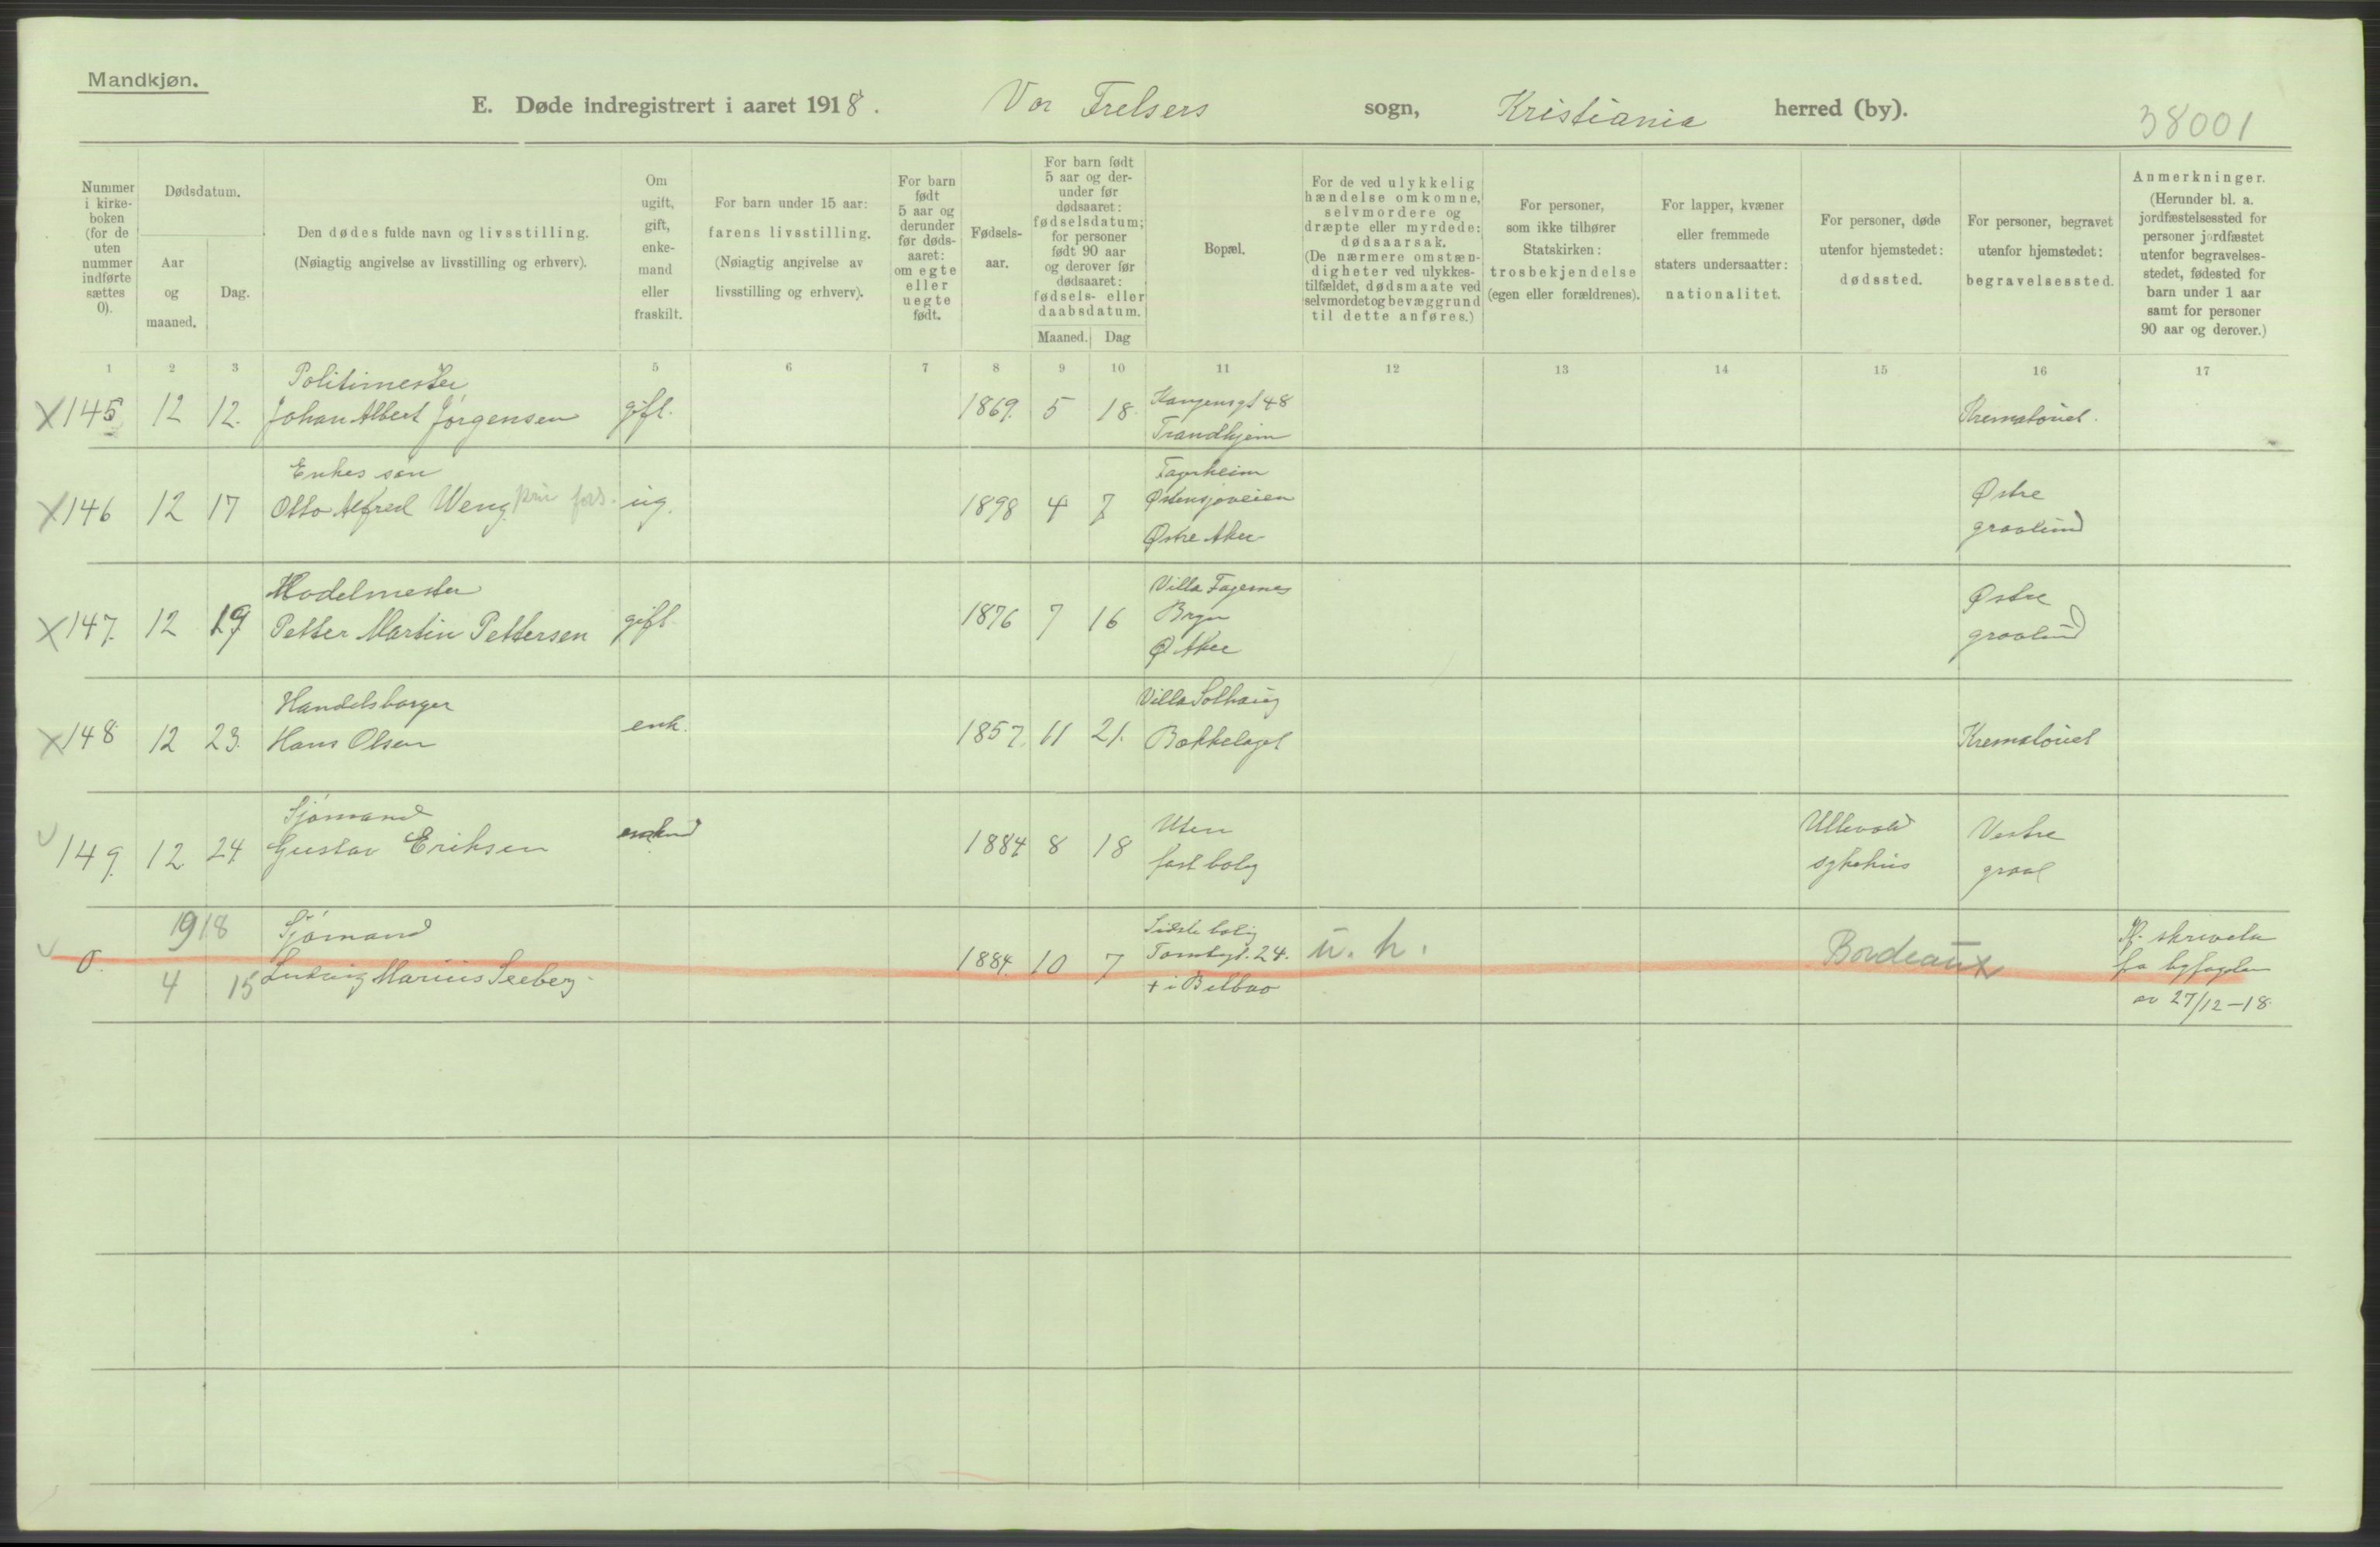 Mandkjøn.
E. Døde indregistrert i aaret 1918. Vor Frelsers sogn, Kristiania herred (by).
38001
Nummer i kirke-boken (for de uten nummer indførte sættes 0).
Dødsdatum.
Aar og maaned.
Dag.
Den dødes fulde navn og livsstilling.
(Nøiagtig angivelse av livsstilling og erhverv).
Om ugift, gift, enke-mand eller fraskilt.
For barn under 15 aar: farens livsstilling.
(Nøiagtig angivelse av livsstilling og erhverv).
For barn født 5 aar og derunder før døds-aaret: om egte eller uegte født.
Fødsels-aar.
For barn født 5 aar og der-under før dødsaaret: fødselsdatum; for personer født 90 aar og derover før dødsaaret: fødsels- eller daabsdatum.
Maaned. Dag
Bopæl.
For de ved ulykkelig hændelse omkomne, selvmordere og dræpte eller myrdede: dødsaarsak.
(De nærmere omstæn-digheter ved ulykkes-tilfældet, dødsmaate ved selvmordet og bevæggrund til dette anføres.)
For personer, som ikke tilhører Statskirken: trosbekjendelse (egen eller forældrenes).
For lapper, kvæner eller fremmede staters undersaatter: nationalitet.
For personer, døde utenfor hjemstedet: dødssted.
For personer, begravet utenfor hjemstedet: begravelsessted.
Anmerkninger.
(Herunder bl. a. jordfæstelsessted for personer jordfæstet utenfor begravelses-stedet, fødested for barn under 1 aar samt for personer 90 aar og derover.)
1 2 3 5 6 7 8 9 10 11 12 13 14 15 16 17
Politimester
X 145 12 12. Johan Albert Jørgensen gift. 1869. 5 18. 48 Krematoriet.
Trondhjem
Enkes søn
X 146 12 17 Otto Alfred Weng. ug. 1898 4 7
Fagerheim
Østensjøveien
Østre Aker
Østre
gravlund
Modelmester
X 147. 12 19 Petter Martin Pettersen gift. 1876 7 16
Villa Fagernes
Bryn
Ø Aker
Østre
gravlund
Handelsborger
X 148 12 23. Hans Olsen enk. 1857. 11 21.
Villa Solhaug
Bækkelaget
Krematoriet
Sjømand
149. 12 24 Gustav Eriksen 1884 8 18
Uten
fast bolig
Ullevold
sykehus
Vestre
gravl
1918 Sjømand
0. 4 15 Ludvig Marius Seeberg. 1884. 10 7
Sidste bolig
Tomtegt. 24.
+ i Bilbao
u. h.
Bordeaux
skrivelse
fra byfogden
av 27/12-18.